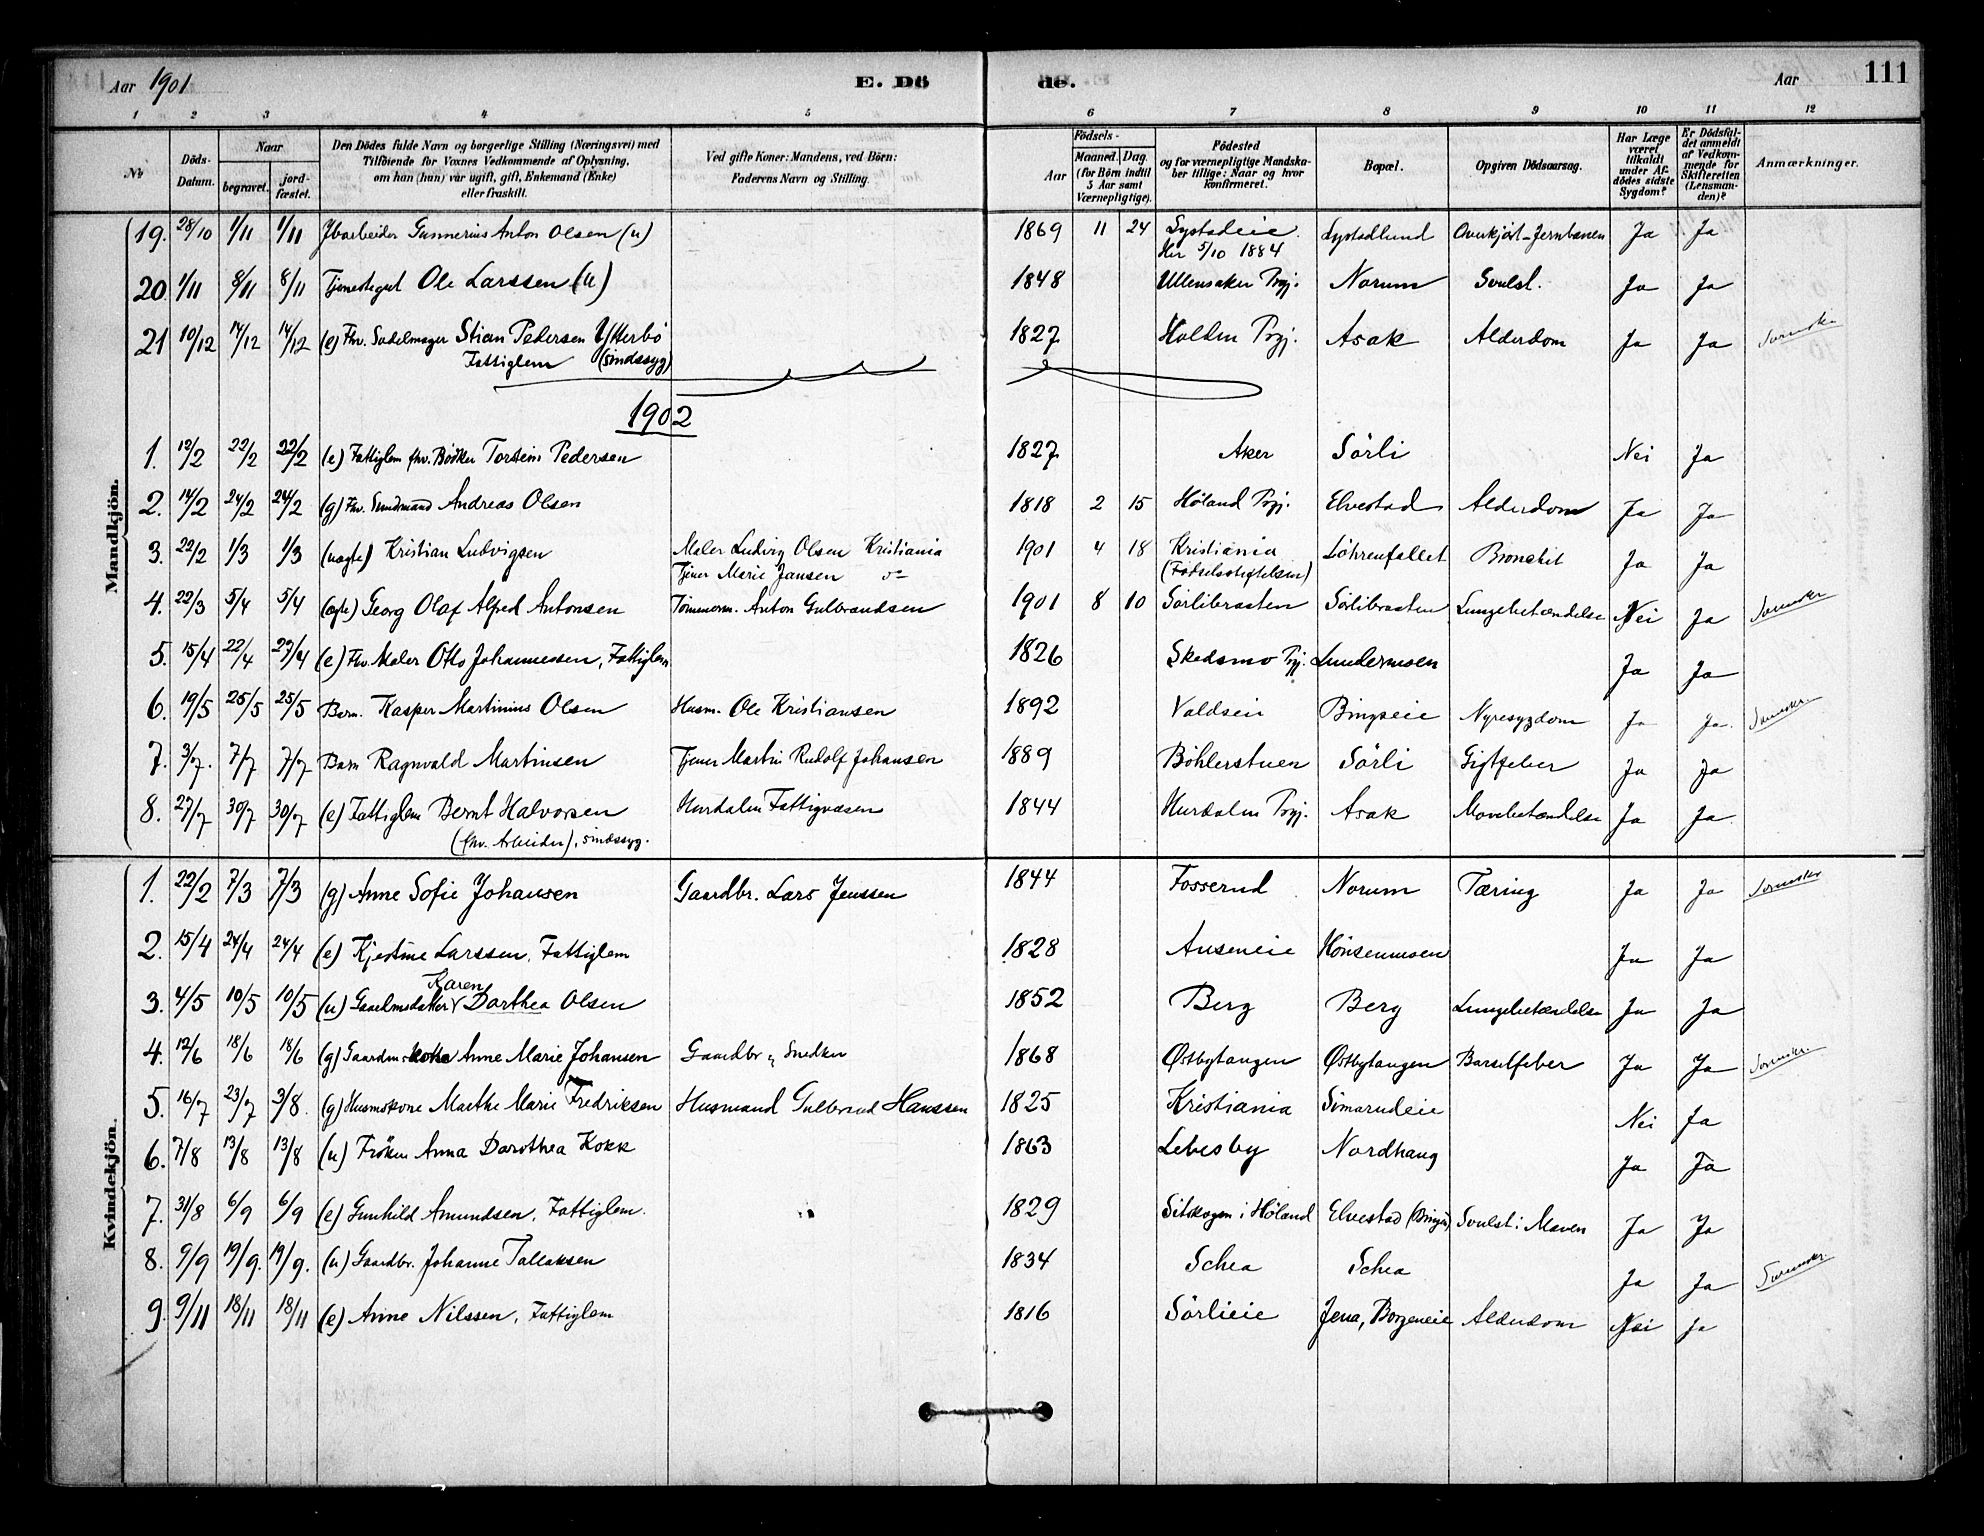 Aar 1901 E. Dö de. Aar 111
1 2 3 4 5 6 7 8 9 10 11 12
No Döds-Datum. Naar begravet. jordfæstet. Den Dödes fulde Navn og borgerlige Stilling (Næringsvei) med Tilföiende for Voxnes Vedkommende af Oplysning, om han (hun) var ugift, gift, Enkemand (Enke) eller fraskilt. Ved gifte Koner: Mandens, ved Börn: Faderens Navn og Stilling. Födsels- Aar Maaned. Dag. (for Börn indtil 5 Aar samt Værnepligtige). Födested og for værnepligtige Mandskaber tillige: Naar og hvor konfirmeret. Bopæl. Opgiven Dödsaarsag. Har Læge været tilkaldt under Afdödes sidste Sygdom? Er Dödsfaldet anmeldt af Vedkommende for Skifteretten (Lensmanden)? Anmærkninger.
Mandkjön.
19. 28/10 1/11 1/11 Jbarbeider Gunnerius Anton Olsen (u) 1869 11 24 Lystadeie. Lystadlund Overkjört–Jernbanen Ja Ja
Her 5/10 1884
20. 1/11 8/11 8/11 Tjenestegut Ole Larssen (u) 1848 Ullensaker Prgj. Norum Svulst. Ja Ja
21 10/12 14/12 14/12 (e) Fhv. Sadelmager Stian Pedersen Ytterbö 1827 Holden Prgj. Asak Alderdom Ja Ja
Fattiglem (sindssyg)
1902
1. 13/2 22/2 22/2 (e) Fattiglem fhv. Bödker Torstein Pedersen 1827 Aker Sörli Nei Ja
2. 14/2 24/2 24/2 (g) Fhv. Andreas Olsen 1818 2 15 Höland Prgj. Elvestad Alderdom Ja Ja
3. 22/2 1/3 1/3 (uægte) Kristian Ludvigsen Maler Ludvig Olsen Kristiania 1901 4 18 Kristiania Löhrenfallet Bronchit Ja Ja
Tjener Marie Jansen (Födselsstiftelsen)
4. 22/3 5/4 5/4 (ægte) Georg Olaf Alfred Antonsen Tömmerm. Anton Gulbrandsen 1901 8 10 Sörlibraaten Sörlibraaten Lungebetændelse Nei Ja
5. 15/4 22/4 27/4 (e) Fhv. Maler Otto Johannessen, Fattiglem 1826 Skedsmo Prgj. Lundermosen Ja Ja
6. 19/5 25/5 25/5 Barn. Kasper Martinius Olsen Husm. Ole Kristiansen 1892 Valdseie Bingseie Nyresygdom Ja Ja.
7. 3/7. 7/7 7/7 Barn Ragnvald Martinsen Tjener Martin Rudolf Johansen 1889 Böhlerstuen Sörli Gigtfeber Ja Ja
8. 27/7 30/7 30/7 (e) Fattiglem Bernt Halvorsen Hurdalen Fattigvæsen 1844 Hurdalen Prgj. Asak Mavebetændelse Ja Ja.
(fhv. Arbeider), sindssyg.
Kvindekjön.
1. 22/2 7/3 7/3 (g) Anne Sofie Johansen Gaardbr. Lars Jenssen 1844 Fosserud Norum Tæring Ja Ja
2. 15/4 24/4 24/4 (e) Kjerstine Larssen, Fattiglem 1828 Auseneie Hönsenmosen Ja Ja
Karen
3. 4/5 10/5 10/5 (u) Gaardmsdatter Darthea Olsen 1852 Berg Berg Lungebetændelse Ja Ja
4. 12/6 18/6 18/6 (g) Anne Marie Johansen Gaardbr. Snedker 1868 Østbytangen Østbytangen Barselfeber Ja Ja
5. 16/7 23/7 3/8. (g) Husmskone Marthe Marie Fredriksen Husmand Gulbrand Hanssen 1825 Kristiania Simarudeie Nei Ja
6. 7/8 13/8 13/8 (u) Fröken Anna Darothea Kokk 1863 Lebesby Nordhaug Ja Ja
7. 31/8 6/9 6/9 (e) Gunhild Amundsen, Fattiglem. 1829 Sitskogen i Höland Elvestad Svulst i Maven Ja Ja
8. 9/9 19/9. 19/9. (u) Gaardbr. Johanne Tallaksen 1834 Schea Schea Ja Ja
9. 9/11 18/11 18/11 (e) Anne Nilssen, Fattiglem 1816 Sörlieie Jena, Borgeneie Alderdom Nei Ja